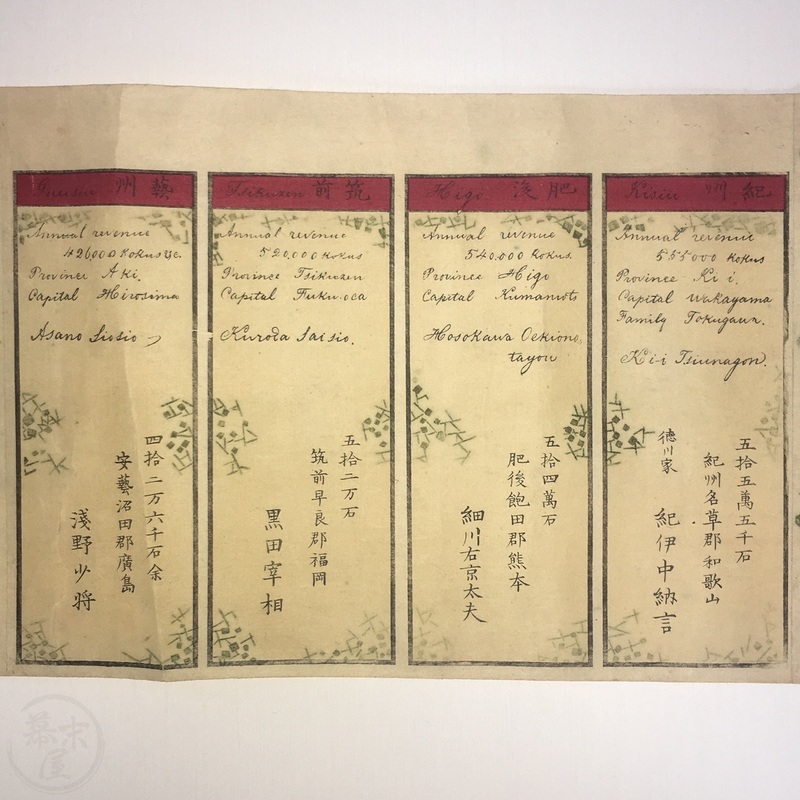 紀州 Kisiu
Annual revenue
555000 kokus
Province Ki i.
Capital Wakayama
Family Tokugawa.
Ki-i Tsiunagon.
五拾五萬五千石
紀州名草郡和歌山
徳川家 紀伊中納言
肥後 Higo
Annual revenue
540.000 kokus.
Province Higo
Capital Kumamoto
Hosokawa Oekiono
tayou
五拾四萬石
肥後飽田郡熊本
細川右京太夫
筑前 Tsikuzen
Annual revenue
520.000 kokus
Province Tsikuzen
Capital Fuku.oca
Kuroda Saisio.
五拾二万石
筑前早良郡福岡
黒田宰相
藝州
Annual revenue
426000 kokus &c.
Province Aki.
Capital Hirosima
Asano Siosio
四拾二万六千石余
安藝沼田郡廣島
淺野少将
幕末屋